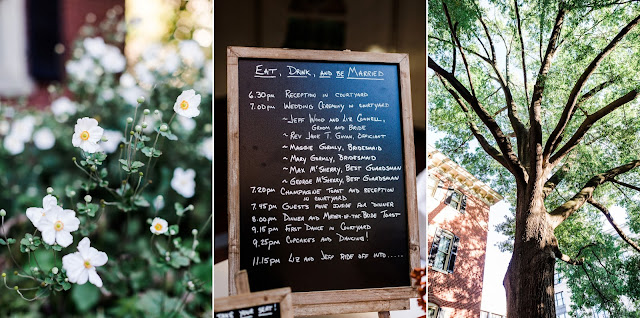 Eat, Drink, and be Married
6.30pm Reception in courtyard
7.00pm Wedding Ceremony in courtyard
~ Jeff Wood and Liz Connell, Groom and Bride
~ Rev. Jack T. Gwan, Officiant
~ Maggie Gormly, Bridesmaid
~ Mary Gormly, Bridesmaid
~ Max McSherry, Best Guardsman
~ George McSherry, Best Guardsman
7.20pm Champagne toast and reception in courtyard
7.45pm Guests move inside for dinner
8.00pm Dinner and Mother-of-the-Bride Toast
9.15pm First Dance in Courtyard
9.25pm Cupcakes and Dancing!
11.15pm Liz and Jeff ride off into.....
Take your seat!